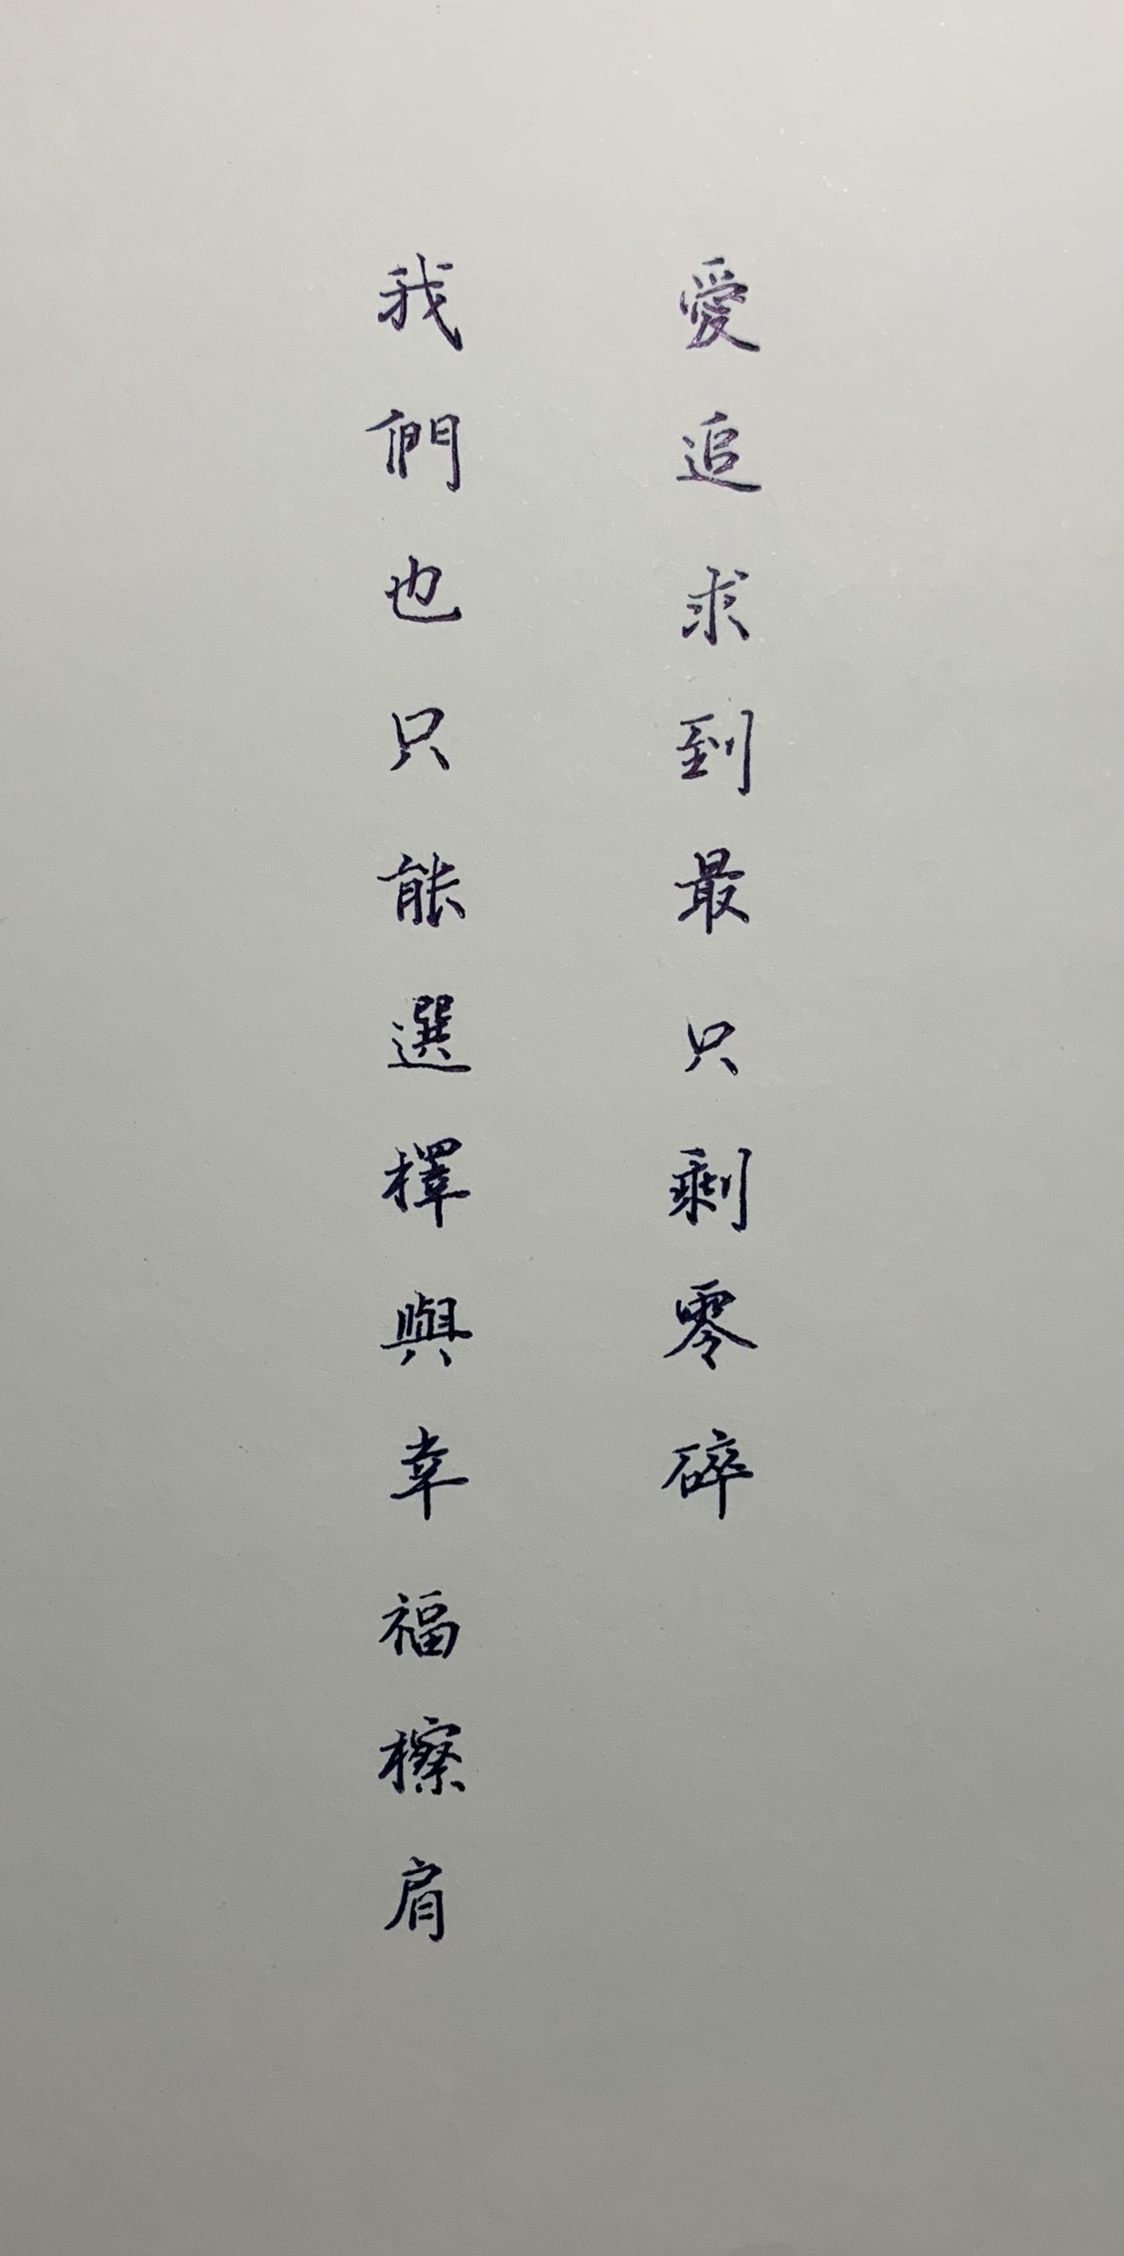 愛追求到最只剩零碎
我們也只能選擇與幸福擦肩